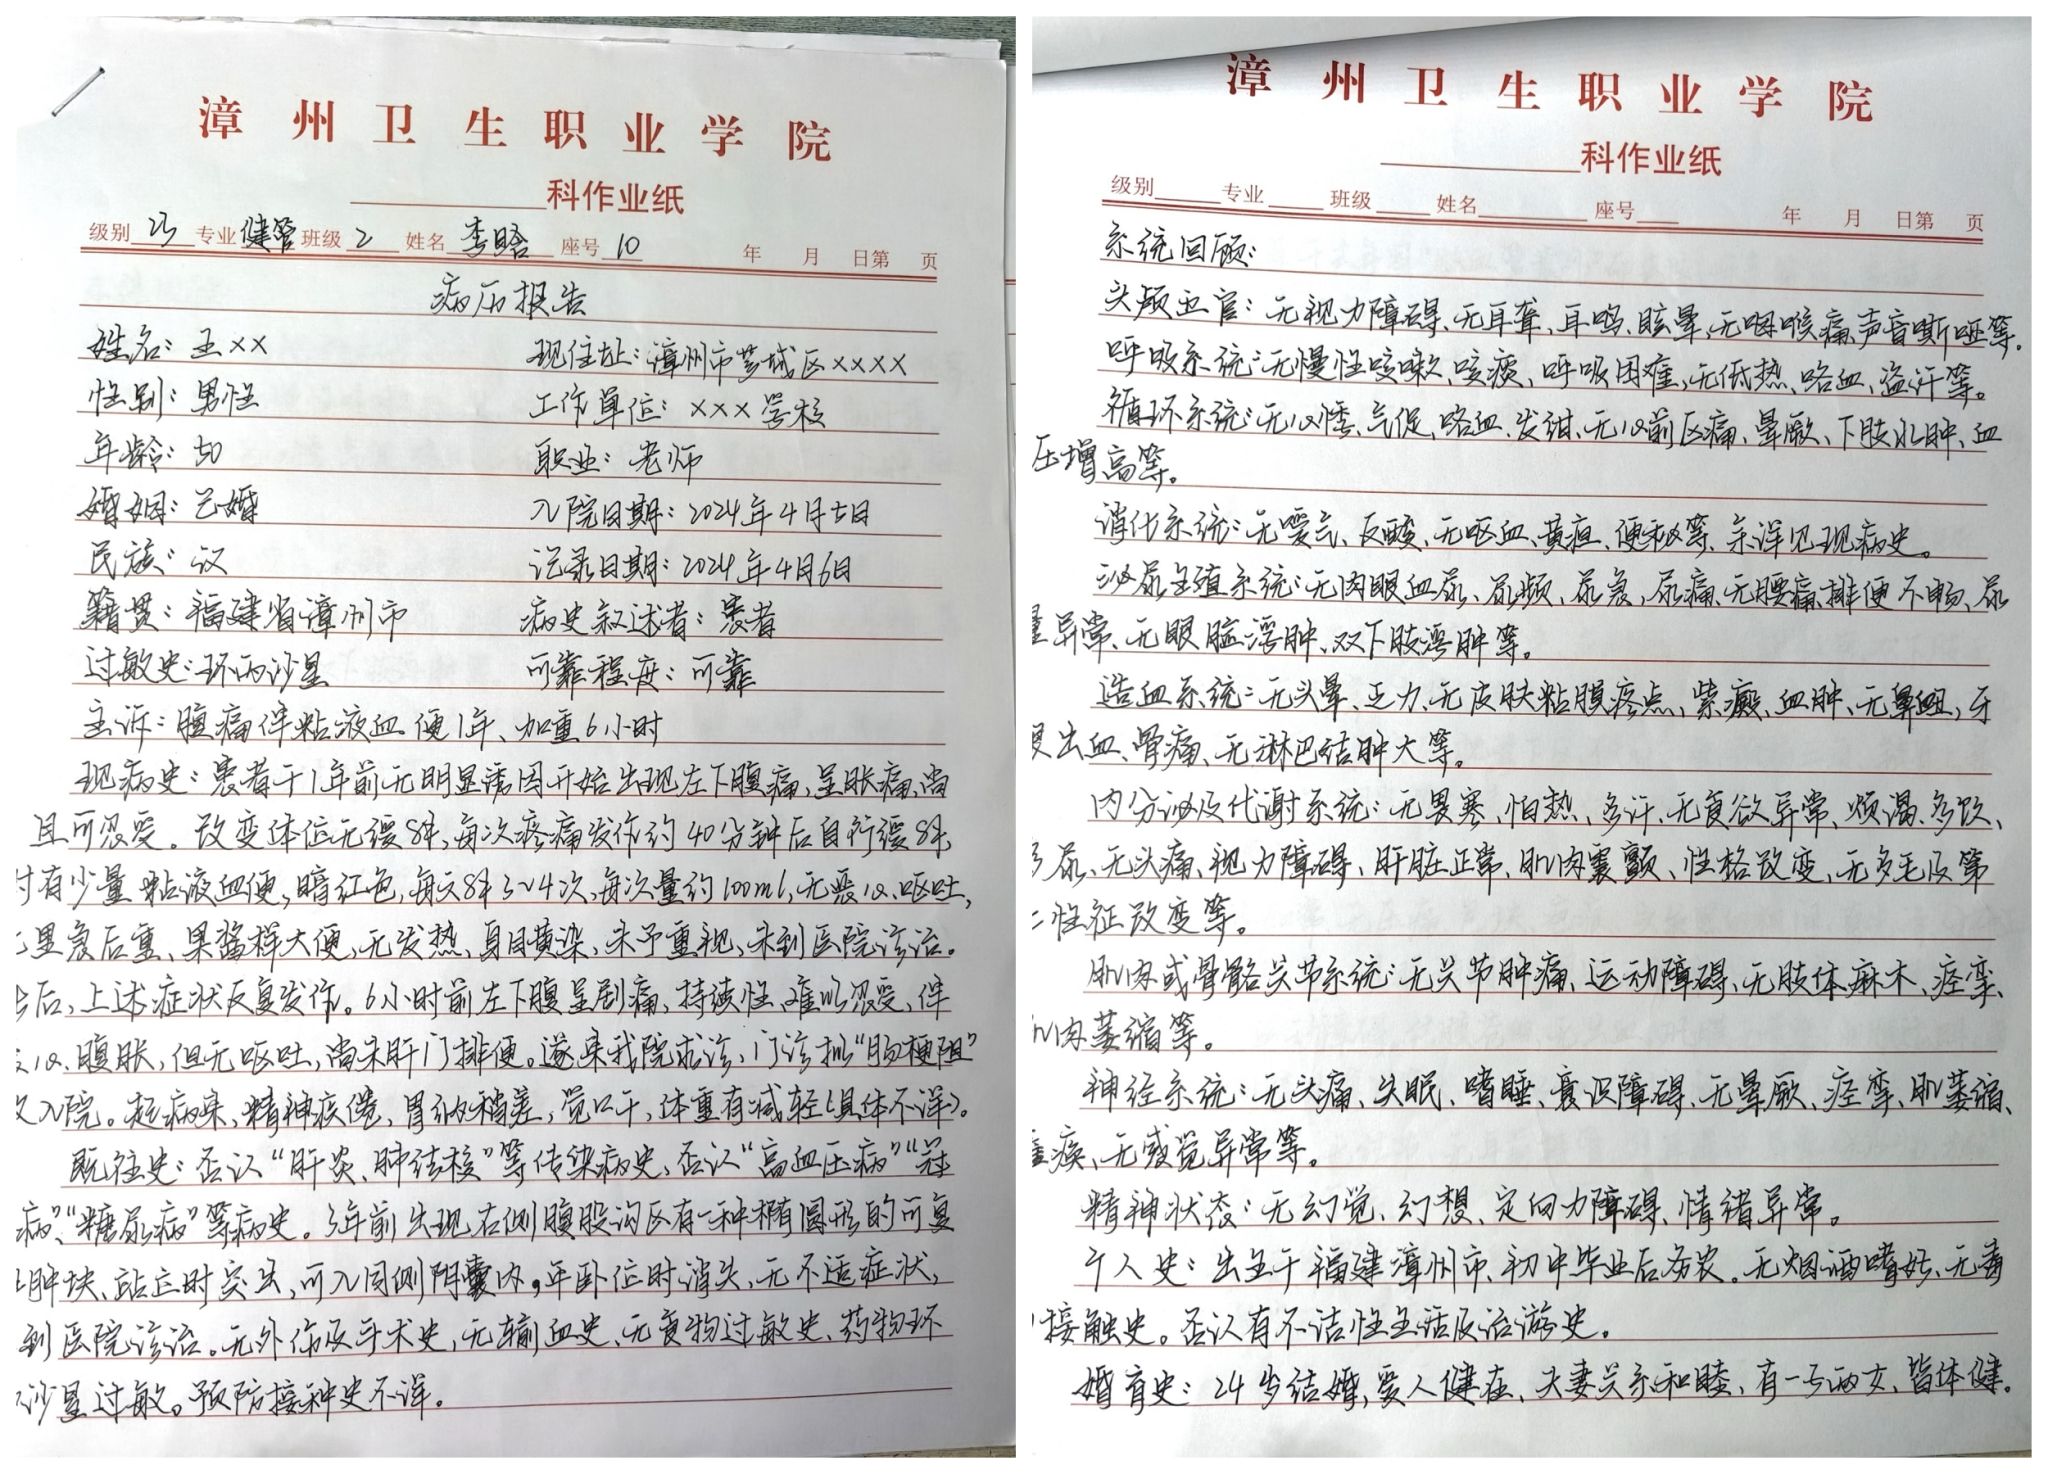 漳州卫生职业学院
科作业纸
级别 23 专业 健管 班级 2 姓名 李晗 座号 10 年 月 日第 页
病历报告
姓名：王×× 现住址：漳州市芗城区××××
性别：男性 工作单位：×××学校
年龄：50 职业：老师
婚姻：已婚 入院日期：2024年4月5日
民族：汉 记录日期：2024年4月6日
籍贯：福建省漳州市 病史叙述者：患者
过敏史：环丙沙星 可靠程度：可靠
主诉：腹痛伴粘液血便1年、加重6小时
现病史：患者于1年前无明显诱因开始出现左下腹痛，呈胀痛，尚
且可忍受。改变体位无缓解，每次疼痛发作约40分钟后自行缓解，
时有少量粘液血便，暗红色，每天解3~4次，每次量约100ml，无恶心、呕吐，
里急后重、果酱样大便，无发热，身目黄染，未予重视，未到医院诊治。
后，上述症状反复发作。6小时前左下腹呈剧痛，持续性，难以忍受，伴
心、腹胀，但无呕吐，尚未肝门排便。遂来我院求诊，门诊拟“肠梗阻”
入院。起病来，精神疲倦，胃纳稍差，觉口干，体重有减轻（具体不详）。
既往史：否认“肝炎、肺结核”等传染病史，否认“高血压病”“冠
病”、“糖尿病”等病史。3年前出现右侧腹股沟区有一种椭圆形的可复
肿块、站立时突出，可入同侧阴囊内，平卧位时消失，无不适症状，
到医院诊治。无外伤及手术史，无输血史、无食物过敏史、药物环
沙星过敏。预防接种史不详。
漳州卫生职业学院
科作业纸
级别 专业 班级 姓名 座号 年 月 日第 页
系统回顾：
头颅五官：无视力障碍、无耳聋、耳鸣、眩晕、无咽喉痛、声音嘶哑等。
呼吸系统：无慢性咳嗽、咳痰、呼吸困难，无低热、咯血、盗汗等。
循环系统：无心悸、气促、咯血、发绀、无心前区痛、晕厥、下肢水肿、血
压增高等。
消化系统：无嗳气、反酸、无呕血、黄疸、便秘等、余详见现病史。
泌尿生殖系统：无肉眼血尿、尿频、尿急，尿痛、无腰痛、排便不畅、尿
量异常、无眼睑浮肿、双下肢浮肿等。
造血系统：无头晕、乏力、无皮肤粘膜疼点、紫癜、血肿、无鼻衄，牙
出血、骨痛、无淋巴结肿大等。
内分泌及代谢系统：无畏寒、怕热、多汗、无食欲异常、烦渴、多饮、
多尿、无头痛、视力障碍、肝脏正常、肌肉震颤、性格改变、无多毛及第
二性征改变等。
肌肉或骨骼关节系统：无关节肿痛、运动障碍、无肢体麻木、痉挛、
肌肉萎缩等。
神经系统：无头痛、失眠、嗜睡、意识障碍、无晕厥、痉挛、肌萎缩、
瘫痪、无感觉异常等。
精神状态：无幻觉、幻想、定向力障碍、情绪异常。
个人史：出生于福建漳州市、初中毕业后务农。无烟酒嗜好、无毒
接触史。否认有不洁性生活及冶游史。
婚育史：24岁结婚，爱人健在、夫妻关系和睦，有一子两女，皆体健。